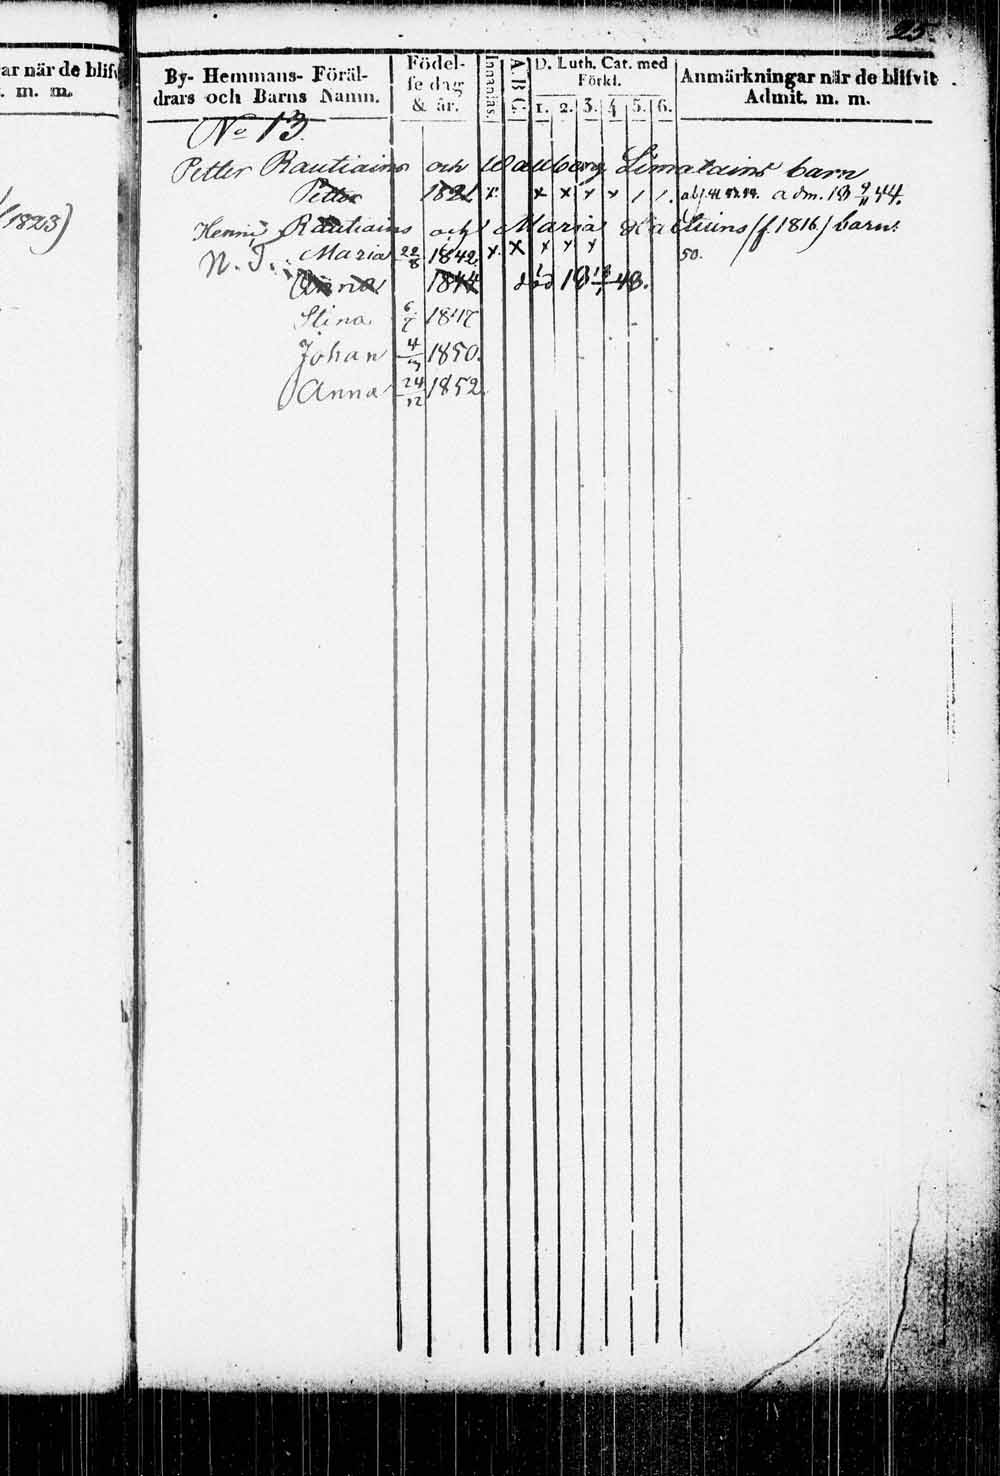 25.
ar när de blifv
. m. m.
By- Hemmans- Föräl-
drars och Barns Namn.
Födel-
se dag
& år.
Innanläs.
A. B. C.
D. Luth. Cat. med
Förkl.
1. 2. 3. 4 5. 6.
Anmärkningar när de blifvit
Admit. m. m.
No 13.
Petter Rautiains och Walborg barn
Petter 1821 x x x x x 1 1. adm. 18 9/11 44.
(1823)
Henric Rautiains och Maria (f. 1816) barn:
N. T. Maria 22/8 1842. x. x x x x 50.
Anna 1844 död 18
Stina 1847
Johan 4 1850.
Anna 24/12 1852.